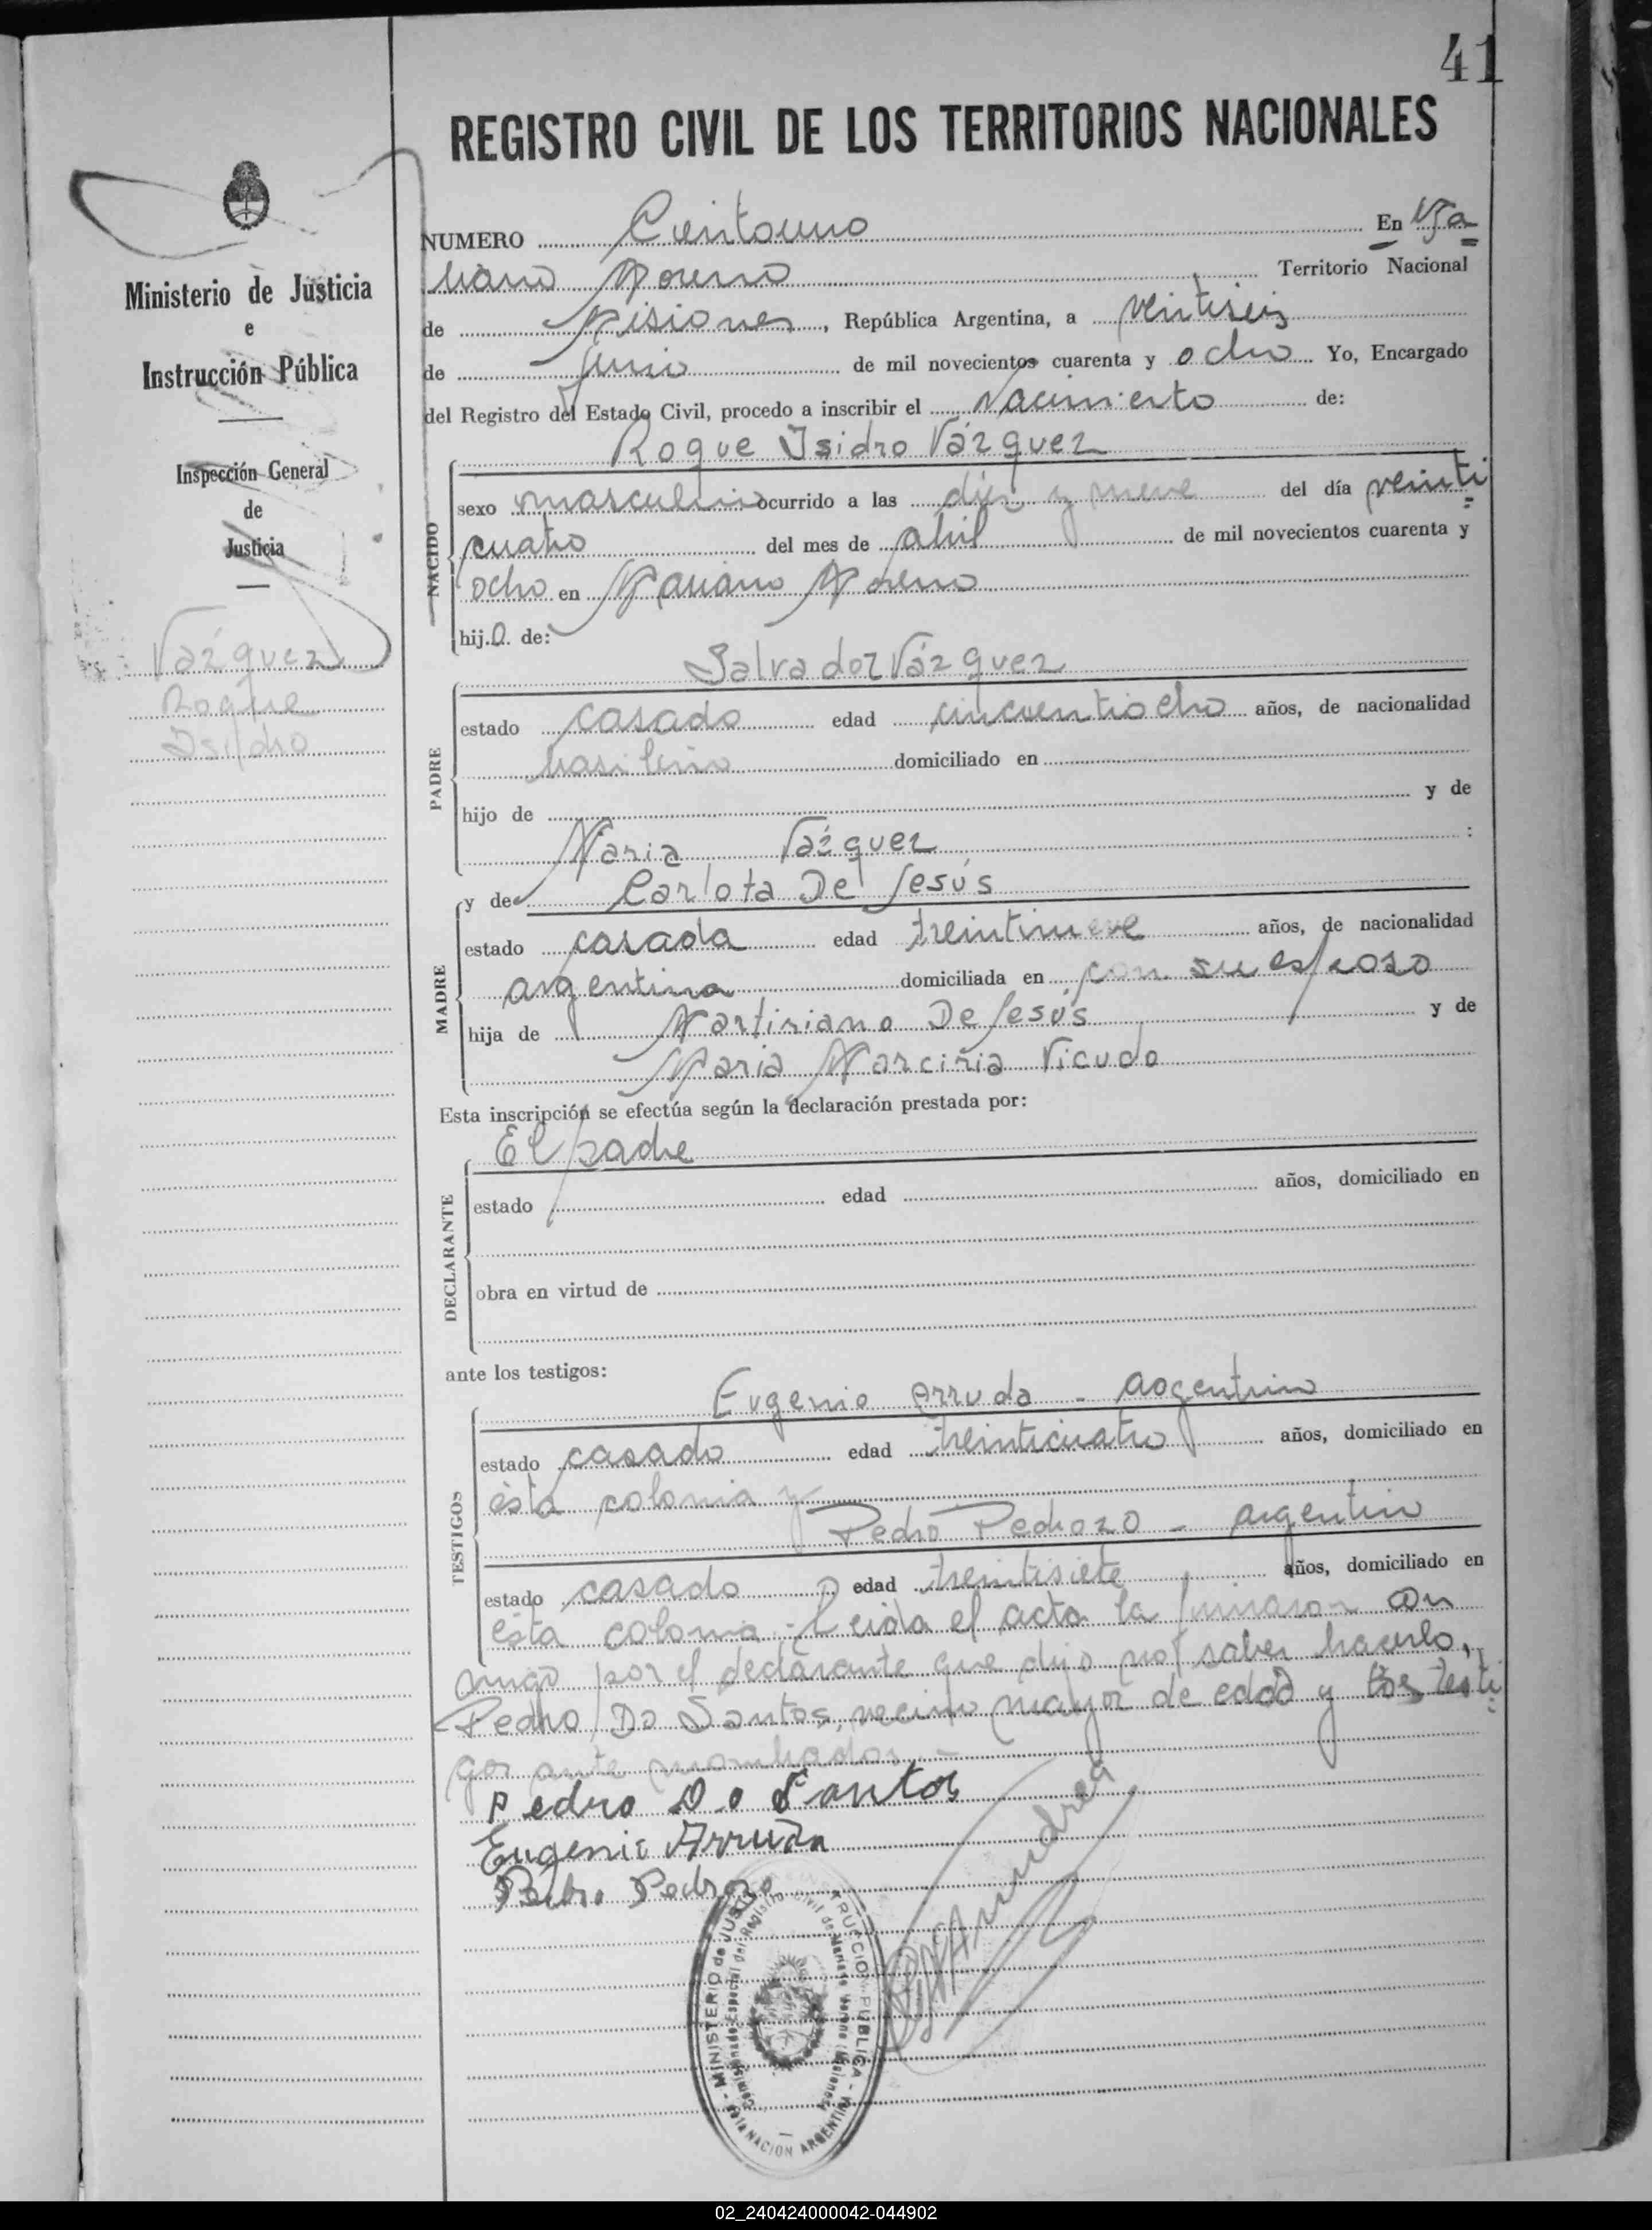 41
REGISTRO CIVIL DE LOS TERRITORIOS NACIONALES
Ministerio de Justicia
e
Instrucción Pública
Inspección General
de
Justicia
Vázquez
Roque
Isidro
NUMERO Cientouno En Ma
riano Moreno Territorio Nacional
de Misiones, República Argentina, a veintiseis
de Junio de mil novecientos cuarenta y ocho Yo, Encargado
del Registro del Estado Civil, procedo a inscribir el Nacimiento de:
Roque Isidro Vázquez
NACIDO
sexo masculino ocurrido a las diez y nueve del día veinti
cuatro del mes de abril de mil novecientos cuarenta y
ocho en Mariano Moreno
hijo de:
Salvador Vázquez
PADRE
estado casado edad cincuentiocho años, de nacionalidad
brasileño domiciliado en
hijo de y de
Maria Vázquez :
y de Carlota De Jesús
MADRE
estado casada edad treintinueve años, de nacionalidad
argentina domiciliada en con su esposo
hija de Martiriano De Jesús y de
Maria Marciria Vicudo
Esta inscripción se efectúa según la declaración prestada por:
El padre
DECLARANTE
estado edad años, domiciliado en
obra en virtud de
ante los testigos:
Eugenio Arruda - argentino
TESTIGOS
estado casado edad treinticuatro años, domiciliado en
ésta colonia y
Pedro Pedrozo - argentino
estado casado edad treintisiete años, domiciliado en
ésta colonia - Leida el acta la firmaron con
migo por el declarante que dijo no saber hacerlo,
Pedro Do Santos, vecino mayor de edad y los testi
gos ante nombrados.-
Pedro Do Santos
Eugenio Arruda
Pedro Pedrozo
MINISTERIO de JUSTICIA e INSTRUCCION PUBLICA - NACION ARGENTINA
02_240424000042-044902